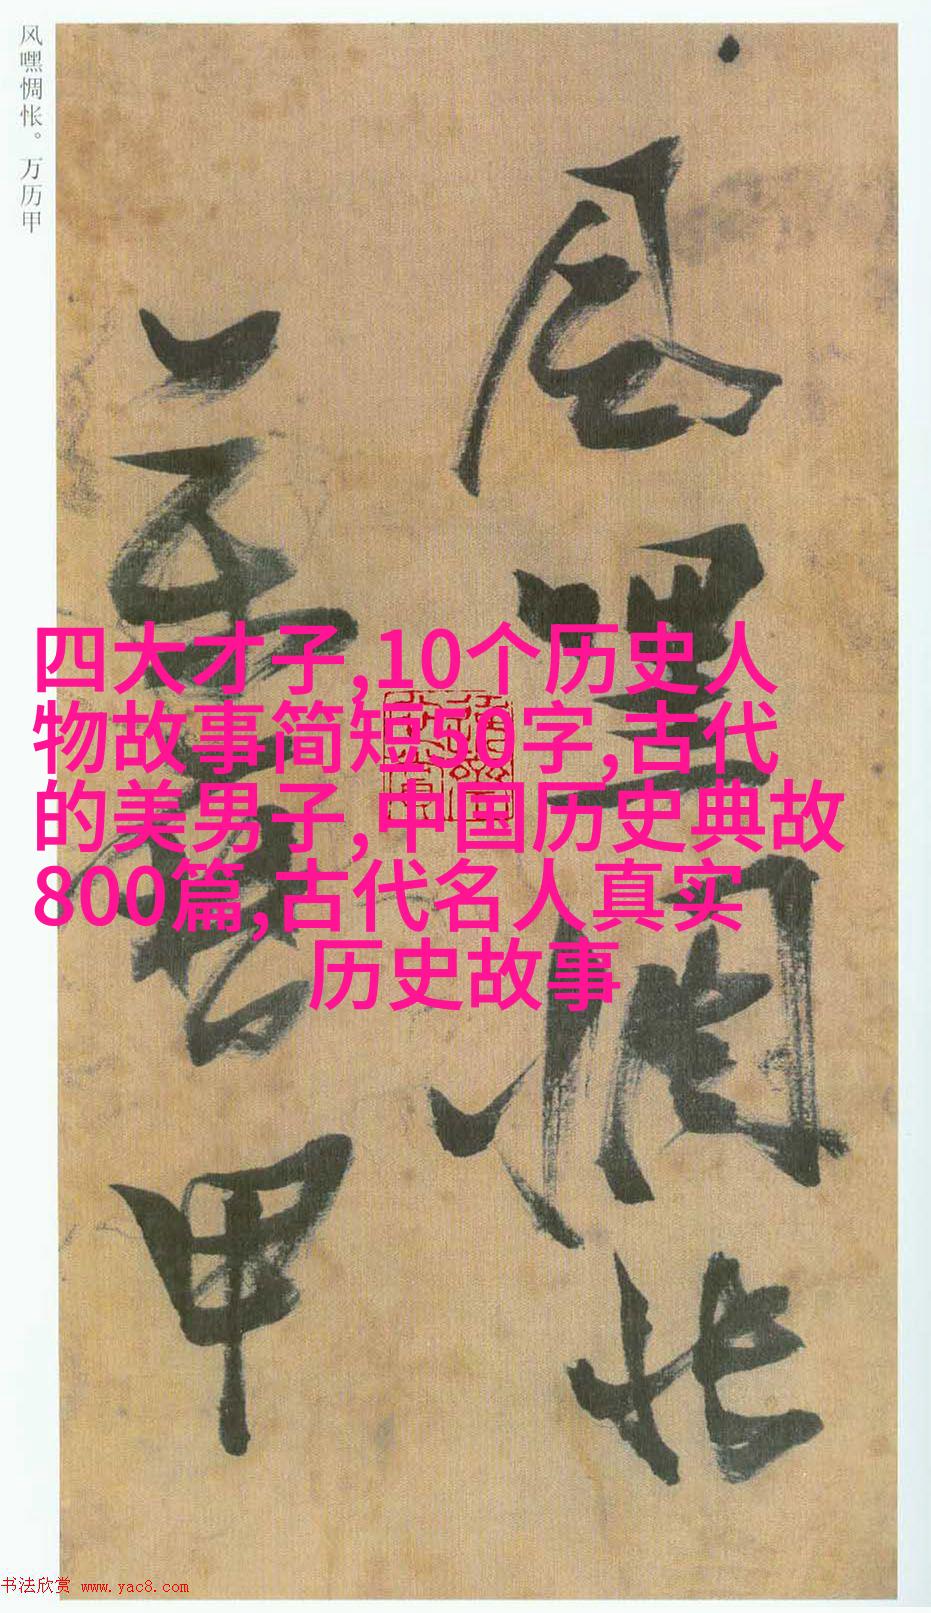 风嘿惆怅。万历甲
风嘿
惆怅
万历甲
四大才子,10个历史人
物故事简短50字,古代
的美男子,中国历史典故
800篇,古代名人真实
历史故事
书法欣赏 www.yac8.com